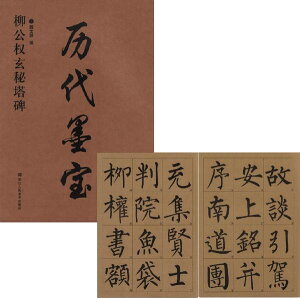 柳公权玄秘塔碑
历代墨宝
故談引駕
安上銘并
序南道團
充集賢士
判院魚袋
柳權書額